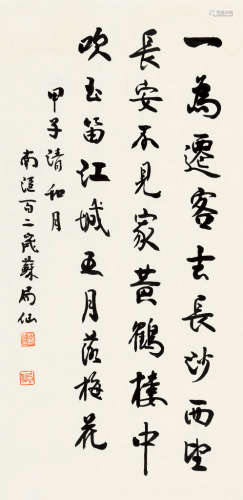 一為遷客去長沙西望
長安不見家黃鶴樓中
吹玉笛江城五月落梅花
甲子清和月
南汇百二歲蘇局仙